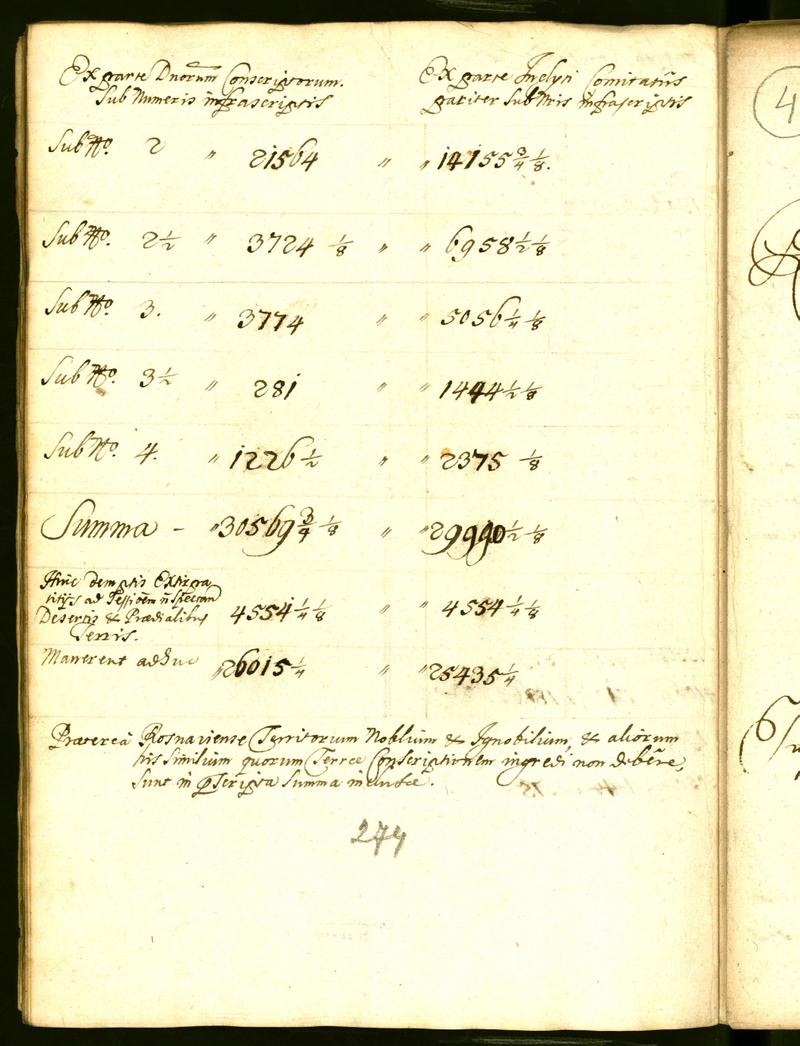 Ex parte Dnorum Conscriptorum.
Sub Numeris infrascriptis
Ex parte Inclyti Comitatus
pariter sub Nris infrascriptis
Sub No. 2 " 21564 " " 14155 3/4 1/8.
Sub No. 2 1/2 " 3724 1/8 " " 6958 1/2 1/8
Sub No. 3. " 3774 " " 5056 1/4 1/8
Sub No. 3 1/2 " 281 " " 1444 1/2 1/8
Sub No. 4. " 1226 1/2 " " 2375 1/8
Summa - " 30569 3/4 1/8 " " 29990 1/2 1/8
Hinc demptis Extirpa
titijs ad Sessionem n spectan
Desertis & Prædialibus
Terris. 4554 1/2 1/8 " " 4554 1/4 1/8
Manerent adhuc " 26015 1/4 " " 25435 1/4
Præterea Rosnaviense Territorium Noblium & Ignobilium, & aliorum
his Similium quorum Terræ Conscriptionem ingredi non debere,
Sunt in Summa inclusæ.
274
4